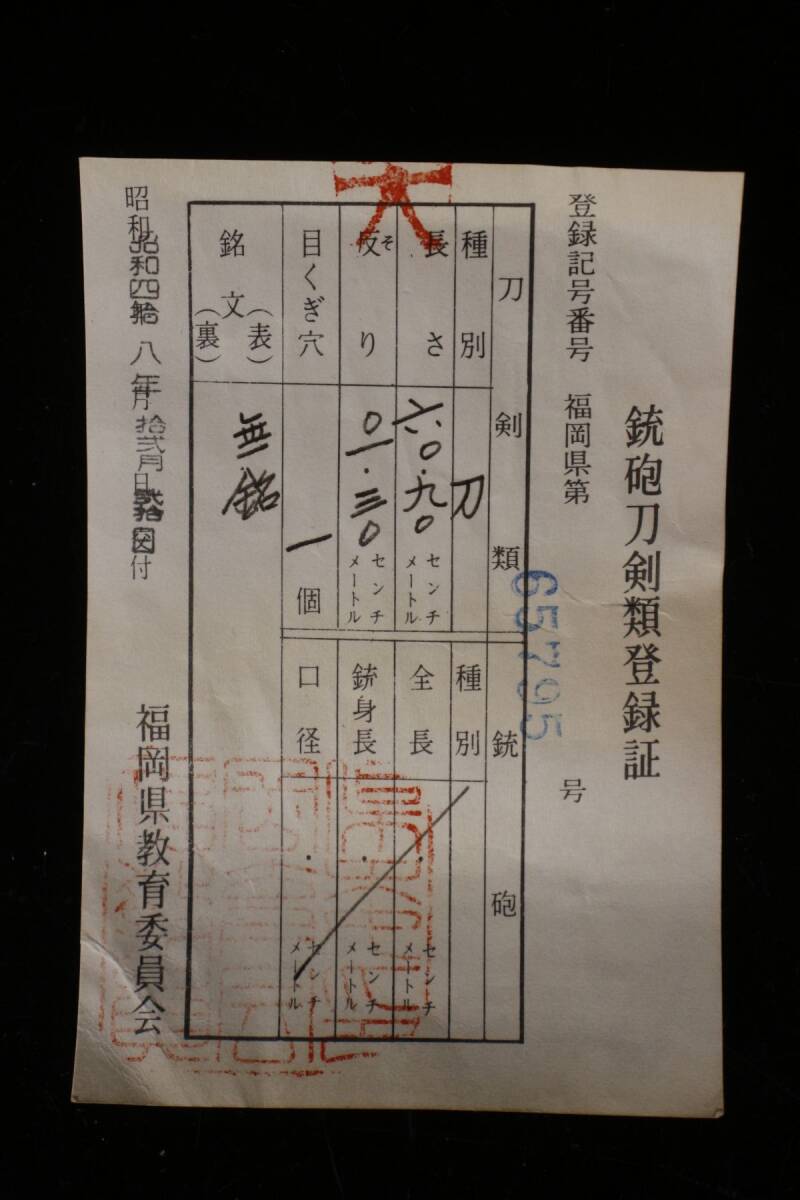 銃砲刀剣類登録証
登録記号番号 福岡県第 65795 号
刀剣類
種別 刀
長さ 六〇.九〇 センチメートル
反り そ 〇一.三〇 センチメートル
目くぎ穴 一 個
銘文 (表) (裏) 無銘
銃砲
種別
全長 . センチメートル
銃身長 . センチメートル
口径 . センチメートル
昭和 昭和四拾八年 月 拾弐月 日 付
福岡県教育委員会